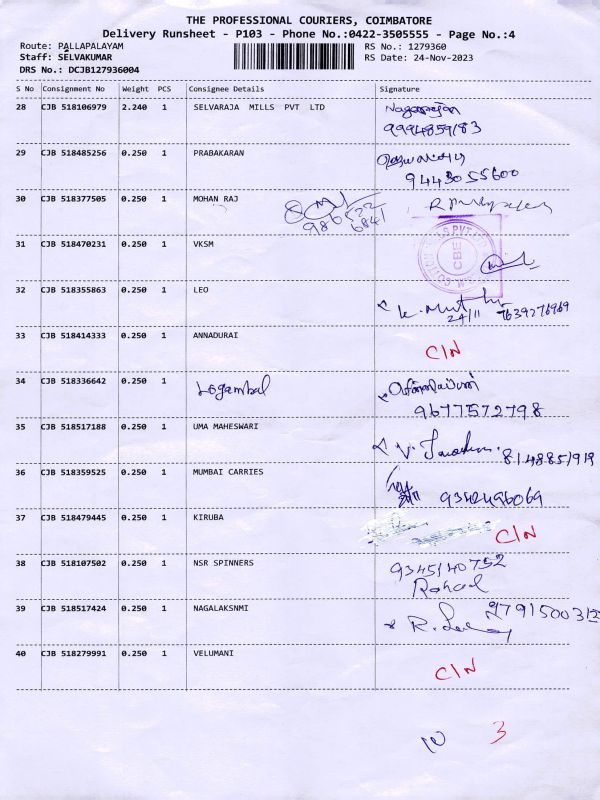 THE PROFESSIONAL COURIERS, COIMBATORE
Delivery Runsheet - P103 - Phone No.:0422-3505555 - Page No.:4
Route: PALLAPALAYAM
Staff: SELVAKUMAR
DRS No.: DCJB127936004
RS No.: 1279360
RS Date: 24-Nov-2023
S No Consignment No Weight PCS Consignee Details Signature
28 CJB 518106979 2.240 1 SELVARAJA MILLS PVT LTD
9994859183
29 CJB 518485256 0.250 1 PRABAKARAN
9443055600
30 CJB 518377505 0.250 1 MOHAN RAJ
31 CJB 518470231 0.250 1 VKSM
CBE
32 CJB 518355863 0.250 1 LEO
K. Muthu
24/11 7639276969
33 CJB 518414333 0.250 1 ANNADURAI
C/N
34 CJB 518336642 0.250 1 Logambal
9677572798
35 CJB 518517188 0.250 1 UMA MAHESWARI
8148851919
36 CJB 518359525 0.250 1 MUMBAI CARRIES
9342496069
37 CJB 518479445 0.250 1 KIRUBA
C/N
38 CJB 518107502 0.250 1 NSR SPINNERS
9345140752
39 CJB 518517424 0.250 1 NAGALAKSNMI
40 CJB 518279991 0.250 1 VELUMANI
C/N
10 3